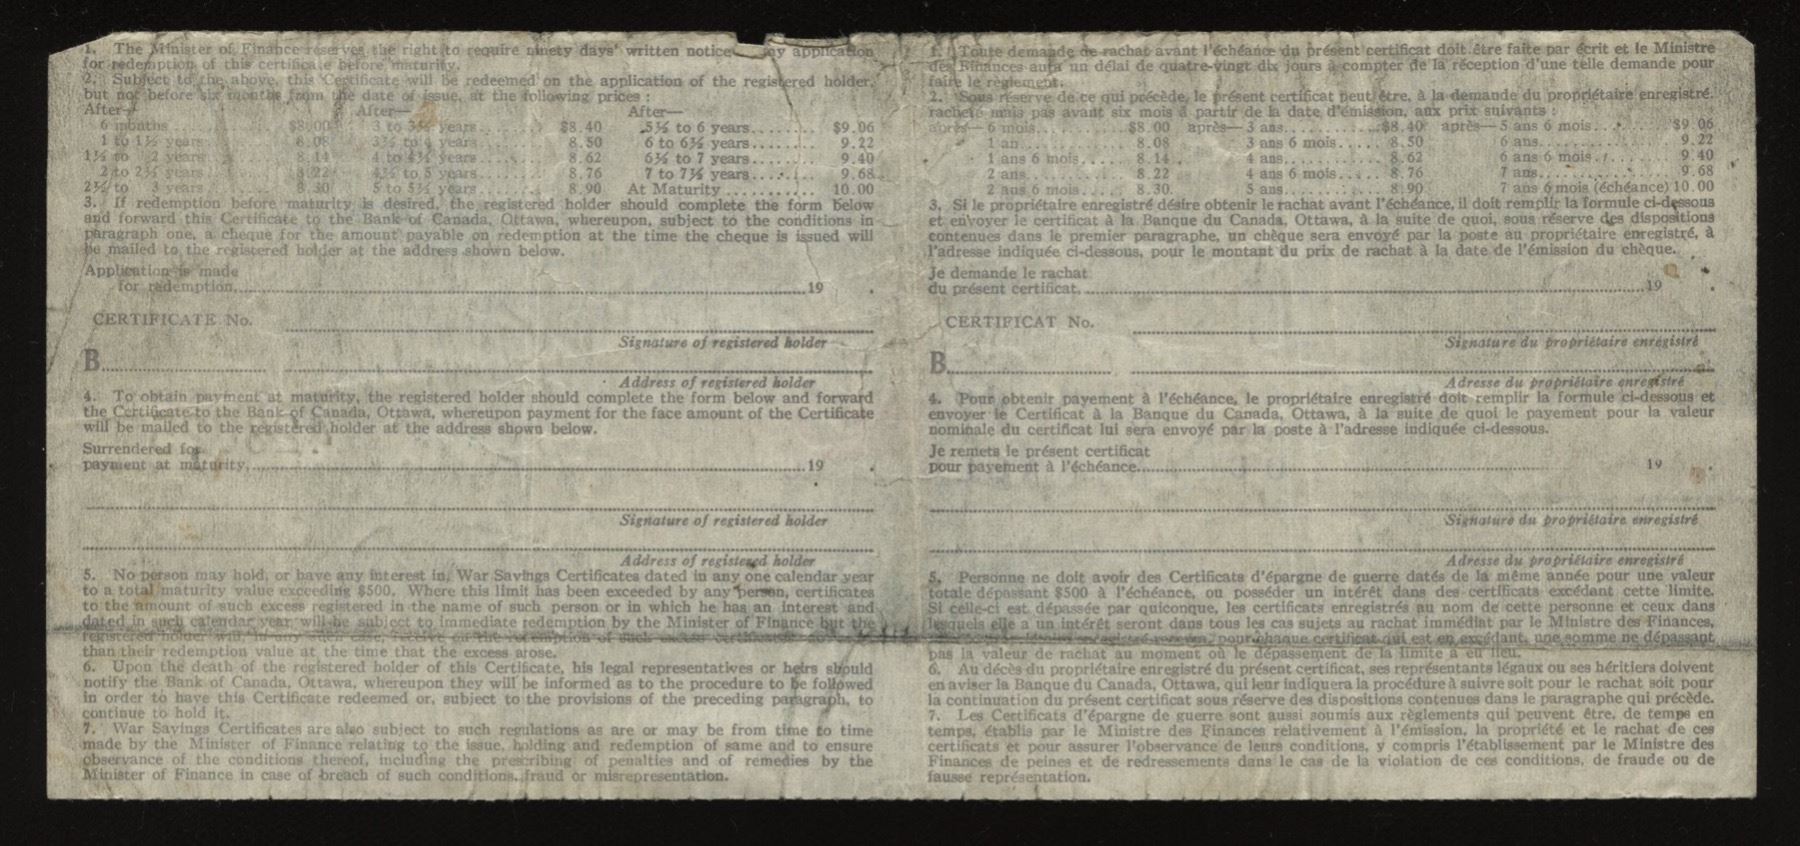 1. The Minister of Finance reserves the right to require ninety days' written notice any application
for redemption of this certificate before maturity.
2. Subject to the above, this Certificate will be redeemed on the application of the registered holder,
but not before six months from the date of issue, at the following prices :
After— After— After—
6 months ........ $8.00 3 to 3½ years........ $8.40 5½ to 6 years........ $9.06
1 to 1½ years ........ 8.08 3½ to 4 years........ 8.50 6 to 6½ years........ 9.22
1½ to 2 years ........ 8.14 4 to 4½ years........ 8.62 6½ to 7 years........ 9.40
2 to 2½ years ........ 8.22 4½ to 5 years........ 8.76 7 to 7½ years........ 9.68
2½ to 3 years ........ 8.30 5 to 5½ years........ 8.90 At Maturity........... 10.00
3. If redemption before maturity is desired, the registered holder should complete the form below
and forward this Certificate to the Bank of Canada, Ottawa, whereupon, subject to the conditions in
paragraph one, a cheque for the amount payable on redemption at the time the cheque is issued will
be mailed to the registered holder at the address shown below.
Application is made
for redemption, 19 .
CERTIFICATE No.
Signature of registered holder
B
Address of registered holder
4. To obtain payment at maturity, the registered holder should complete the form below and forward
the Certificate to the Bank of Canada, Ottawa, whereupon payment for the face amount of the Certificate
will be mailed to the registered holder at the address shown below.
Surrendered for
payment at maturity, 19 .
Signature of registered holder
Address of registered holder
5. No person may hold, or have any interest in, War Savings Certificates dated in any one calendar year
to a total maturity value exceeding $500. Where this limit has been exceeded by any person, certificates
to the amount of such excess registered in the name of such person or in which he has an interest and
dated in such calendar year will be subject to immediate redemption by the Minister of Finance but the
registered holder will, in any such case, receive on the redemption of such excess certificates not more
than their redemption value at the time that the excess arose.
6. Upon the death of the registered holder of this Certificate, his legal representatives or heirs should
notify the Bank of Canada, Ottawa, whereupon they will be informed as to the procedure to be followed
in order to have this Certificate redeemed or, subject to the provisions of the preceding paragraph, to
continue to hold it.
7. War Savings Certificates are also subject to such regulations as are or may be from time to time
made by the Minister of Finance relating to the issue, holding and redemption of same and to ensure
observance of the conditions thereof, including the prescribing of penalties and of remedies by the
Minister of Finance in case of breach of such conditions, fraud or misrepresentation.
1. Toute demande de rachat avant l'échéance du présent certificat doit être faite par écrit et le Ministre
des Finances aura un délai de quatre-vingt dix jours à compter de la réception d'une telle demande pour
faire le règlement.
2. Sous réserve de ce qui précède, le présent certificat peut être, à la demande du propriétaire enregistré,
racheté mais pas avant six mois à partir de la date d'émission, aux prix suivants :
après— 6 mois........ $8.00 après— 3 ans........ $8.40 après— 5 ans 6 mois........ $9.06
1 an........ 8.08 3 ans 6 mois...... 8.50 6 ans........ 9.22
1 ans 6 mois...... 8.14 4 ans........ 8.62 6 ans 6 mois........ 9.40
2 ans........ 8.22 4 ans 6 mois...... 8.76 7 ans........ 9.68
2 ans 6 mois...... 8.30. 5 ans........ 8.90 7 ans 6 mois (échéance) 10.00
3. Si le propriétaire enregistré désire obtenir le rachat avant l'échéance, il doit remplir la formule ci-dessous
et envoyer le certificat à la Banque du Canada, Ottawa, à la suite de quoi, sous réserve des dispositions
contenues dans le premier paragraphe, un chèque sera envoyé par la poste au propriétaire enregistré, à
l'adresse indiquée ci-dessous, pour le montant du prix de rachat à la date de l'émission du chèque.
Je demande le rachat
du présent certificat, 19 .
CERTIFICAT No.
Signature du propriétaire enregistré
B
Adresse du propriétaire enregistré
4. Pour obtenir payement à l'échéance, le propriétaire enregistré doit remplir la formule ci-dessous et
envoyer le Certificat à la Banque du Canada, Ottawa, à la suite de quoi le payement pour la valeur
nominale du certificat lui sera envoyé par la poste à l'adresse indiquée ci-dessous.
Je remets le présent certificat
pour payement à l'échéance 19 .
Signature du propriétaire enregistré
Adresse du propriétaire enregistré
5. Personne ne doit avoir des Certificats d'épargne de guerre datés de la même année pour une valeur
totale dépassant $500 à l'échéance, ou posséder un intérêt dans des certificats excédant cette limite.
Si celle-ci est dépassée par quiconque, les certificats enregistrés au nom de cette personne et ceux dans
lesquels elle a un intérêt seront dans tous les cas sujets au rachat immédiat par le Ministre des Finances,
pour chaque certificat qui est en excédant, une somme ne dépassant
pas la valeur de rachat au moment où le dépassement de la limite a eu lieu.
6. Au décès du propriétaire enregistré du présent certificat, ses représentants légaux ou ses héritiers doivent
en aviser la Banque du Canada, Ottawa, qui leur indiquera la procédure à suivre soit pour le rachat soit pour
la continuation du présent certificat sous réserve des dispositions contenues dans le paragraphe qui précède.
7. Les Certificats d'épargne de guerre sont aussi soumis aux règlements qui peuvent être, de temps en
temps, établis par le Ministre des Finances relativement à l'émission, la propriété et le rachat de ces
certificats et pour assurer l'observance de leurs conditions, y compris l'établissement par le Ministre des
Finances de peines et de redressements dans le cas de la violation de ces conditions, de fraude ou de
fausse représentation.